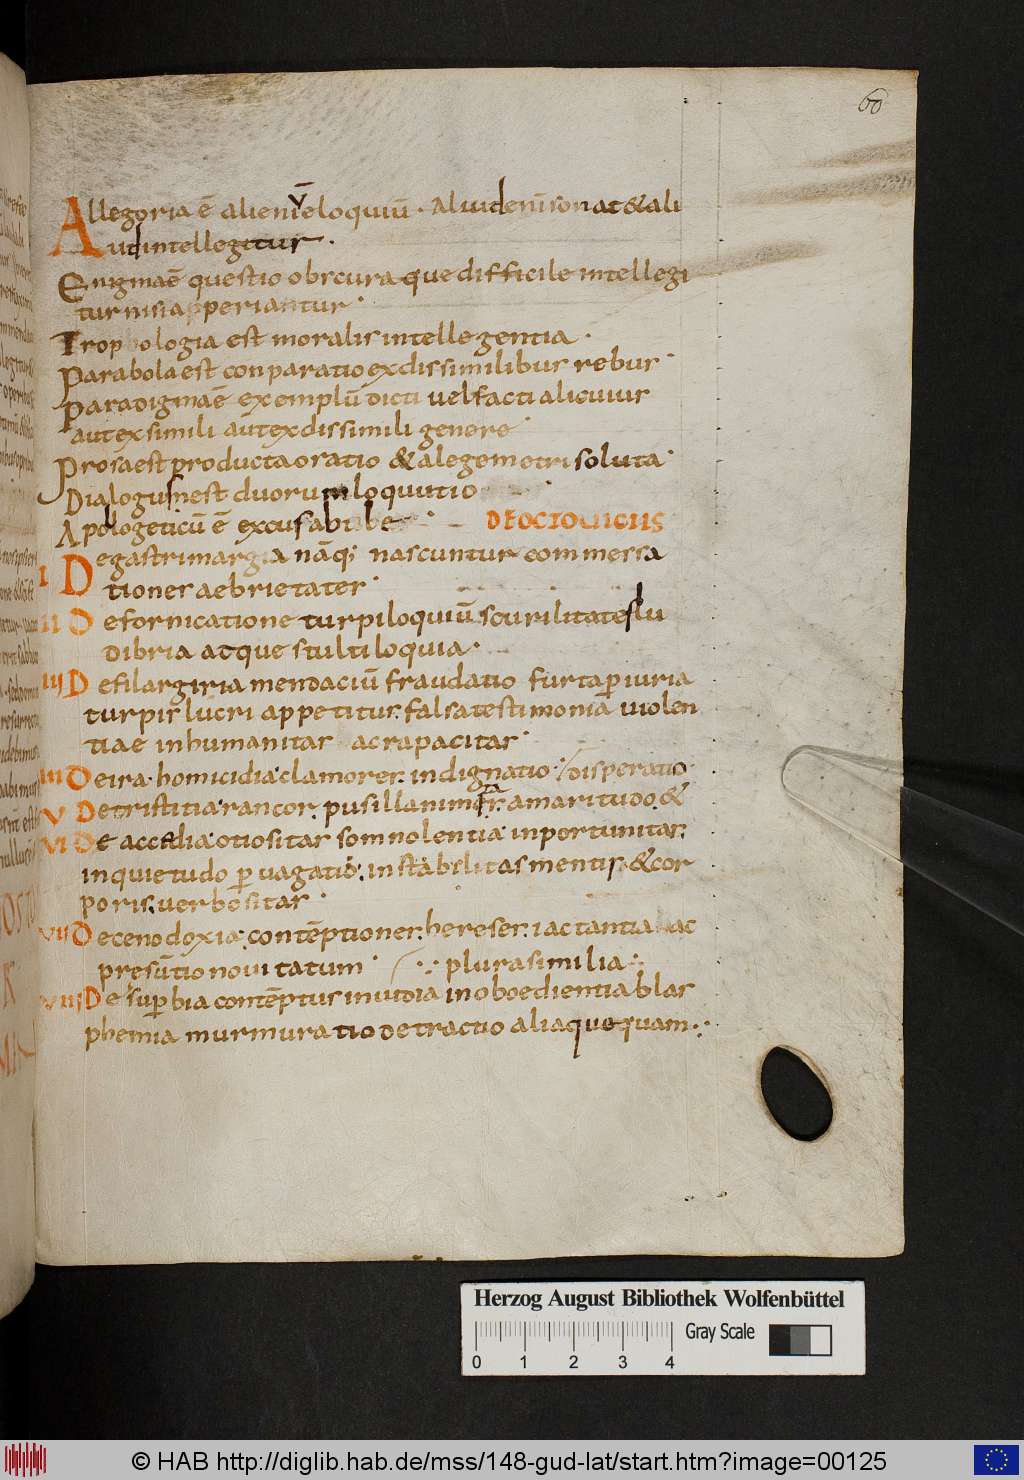 60
Allegoria ē alieniv̄eloquiū · Aliudenī sonat & ali
ud intellegitur ·
Enigmaē questio obscura que difficile intellegi
tur nisi apperiantur ·
Trophologia est moralis intellegentia ·
Parabola est conparatio ex dissimilibus rebus ·
Paradigmaē exemplū dicti vel facti alicuius
aut ex simili aut ex dissimili genere ·
Prosa est producta oratio & a lege metri soluta ·
Dialogus nest duorum loquutio
Apologeticū ē excusabi
DE OCTO UICIIS
I De gastrimargia nāq; nascuntur commessa
tiones aebrietates ·
II De fornicatione turpiloquiū scurilitates lu
dibria atque stultiloquia ·
III De filargiria mendaciū fraudatio furta periuria
turpis lucri appetitus. falsa testimonia uiolen
tiae inhumanitas ac rapacitas ·
IIII De ira · homicidia clamores. indignatio · disperatio ·
V De tristitia · rancor. amaritudo. &
VI De accedia otiositas somnolentia inportunitas;
inquietudo peruagatio. instabilitas mentis. & cor
poris. uerbositas ·
VII De cenodoxia; contēptiones. hereses. iactantia ac
presūtio nouitatum · plura similia
VIII De superbia contēptus inuidia inoboedientia blas
phemia murmuratio detractio alia quoquam
Herzog August Bibliothek Wolfenbüttel
Gray Scale
0 1 2 3 4
© HAB http://diglib.hab.de/mss/148-gud-lat/start.htm?image=00125